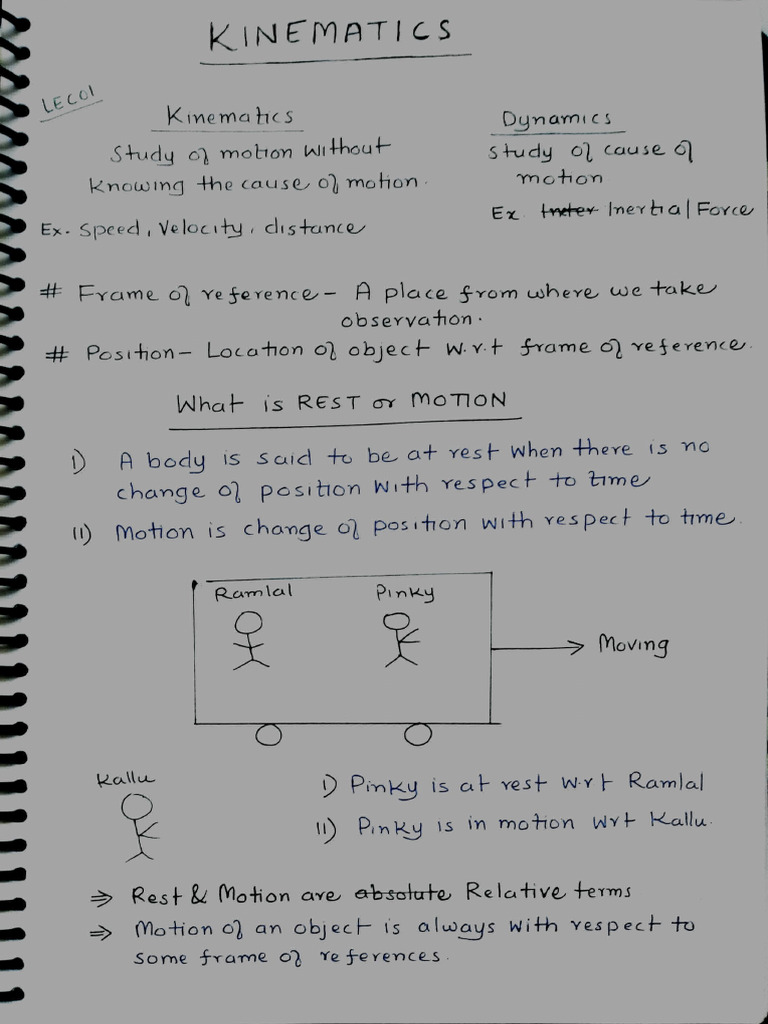 KINEMATICS
LEC01
Kinematics
Study of motion without
Knowing the cause of motion.
Ex. Speed, Velocity, distance
Dynamics
Study of cause of
motion
Ex. Inertia/Force
# Frame of reference - A place from where we take
observation.
# Position - Location of object w.r.t frame of reference.
What is REST or MOTION
I) A body is said to be at rest when there is no
change of position with respect to time
II) Motion is change of position with respect to time.
Ramlal
Pinky
Moving
Kallu
I) Pinky is at rest w.r.t Ramlal
II) Pinky is in motion wrt Kallu.
⇒ Rest & Motion are absolute Relative terms
⇒ Motion of an object is always with respect to
some frame of references.